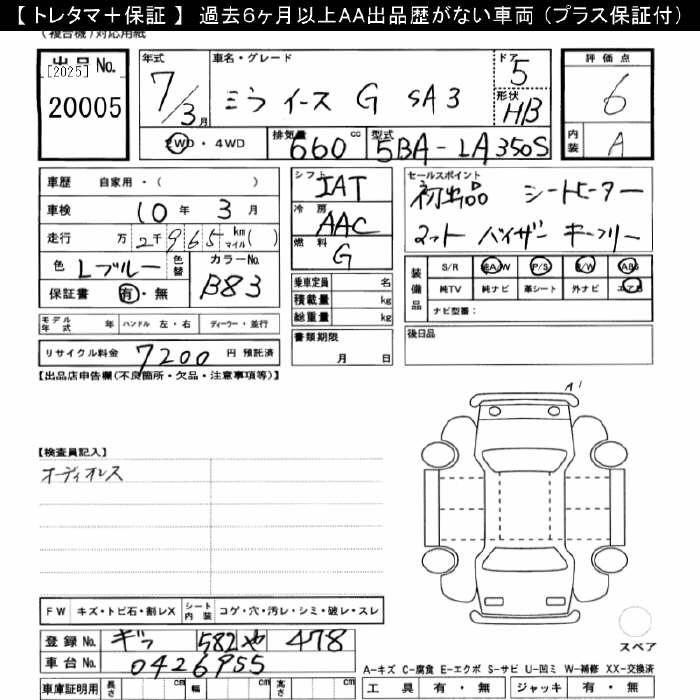 【 トレタマ＋保証 】 過去６ヶ月以上ＡＡ出品歴がない車両（プラス保証付）
(複合機)対応用紙
出品 No.
[2025]
20005
年式 7/3月
車名・グレード ミライース G SA3
ドア 5
形状 HB
評価点 6
内装 A
2WD ・ 4WD
排気量 660 cc
型式 5BA-LA350S
車歴 自家用・( )
車検 10 年 3 月
走行 万 2千965 km マイル( )
色 Lブルー 色替
カラーNo. B83
保証書 有・無
シフト IAT
冷房 AAC
燃料 G
乗車定員 名
積載量 kg
総重量 kg
セールスポイント
初出品 シートヒーター
マット バイザー キーフリー
装備品 S/R 純A/W P/S P/W ABS
純TV 純ナビ 革シート 外ナビ エアB
ナビ型番：
モデル年式 年 ハンドル 左・右 ディーラー・並行
書類期限 月 日
後日品
リサイクル料金 7200 円 預託済
【出品店申告欄(不良箇所・欠品・注意事項等)】
A1
【検査員記入】
オーディオレス
FW キズ・トビ石・割レX シート内装 コゲ・穴・汚レ・シミ・破レ・スレ
登録 No. ギフ 582 や 478
車台 No. 0426955
スペア
A-キズ C-腐食 E-エクボ S-サビ U-凹ミ W-補修 XX-交換済
車庫証明用 長さ cm 幅 cm 高さ cm
工具 有・無 ジャッキ 有・無